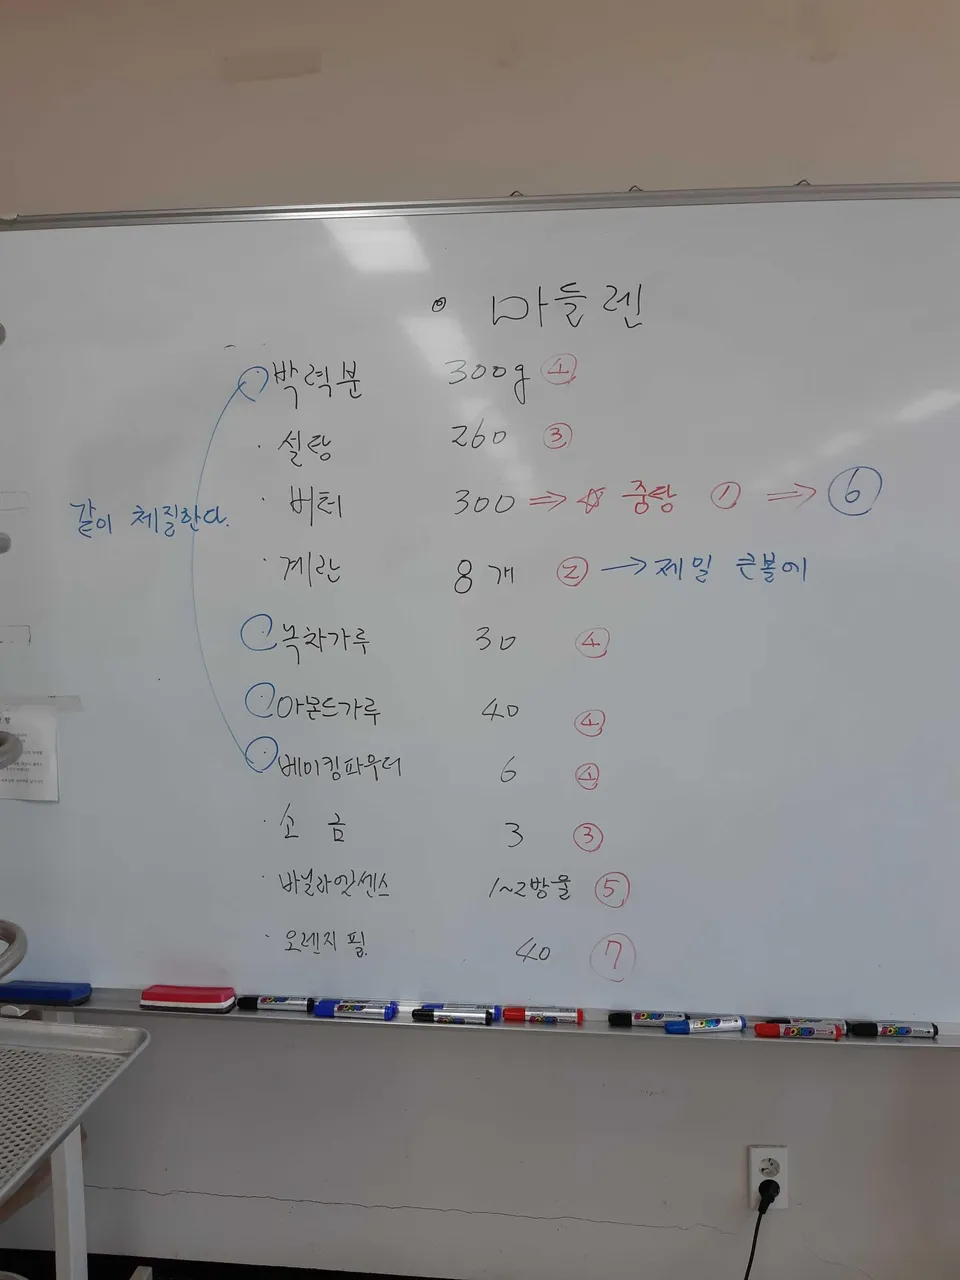 ◎ 마들렌
박력분 300g ④
· 설탕 260 ③
· 버터 300 ⇒ ☆ 중탕 ① ⇒ ⑥
같이 체질한다.
· 계란 8개 ② → 제일 큰볼에
녹차가루 30 ④
아몬드가루 40 ④
베이킹파우더 6 ④
· 소금 3 ③
· 바닐라엣센스 1~2방울 ⑤
· 오렌지필 40 ⑦